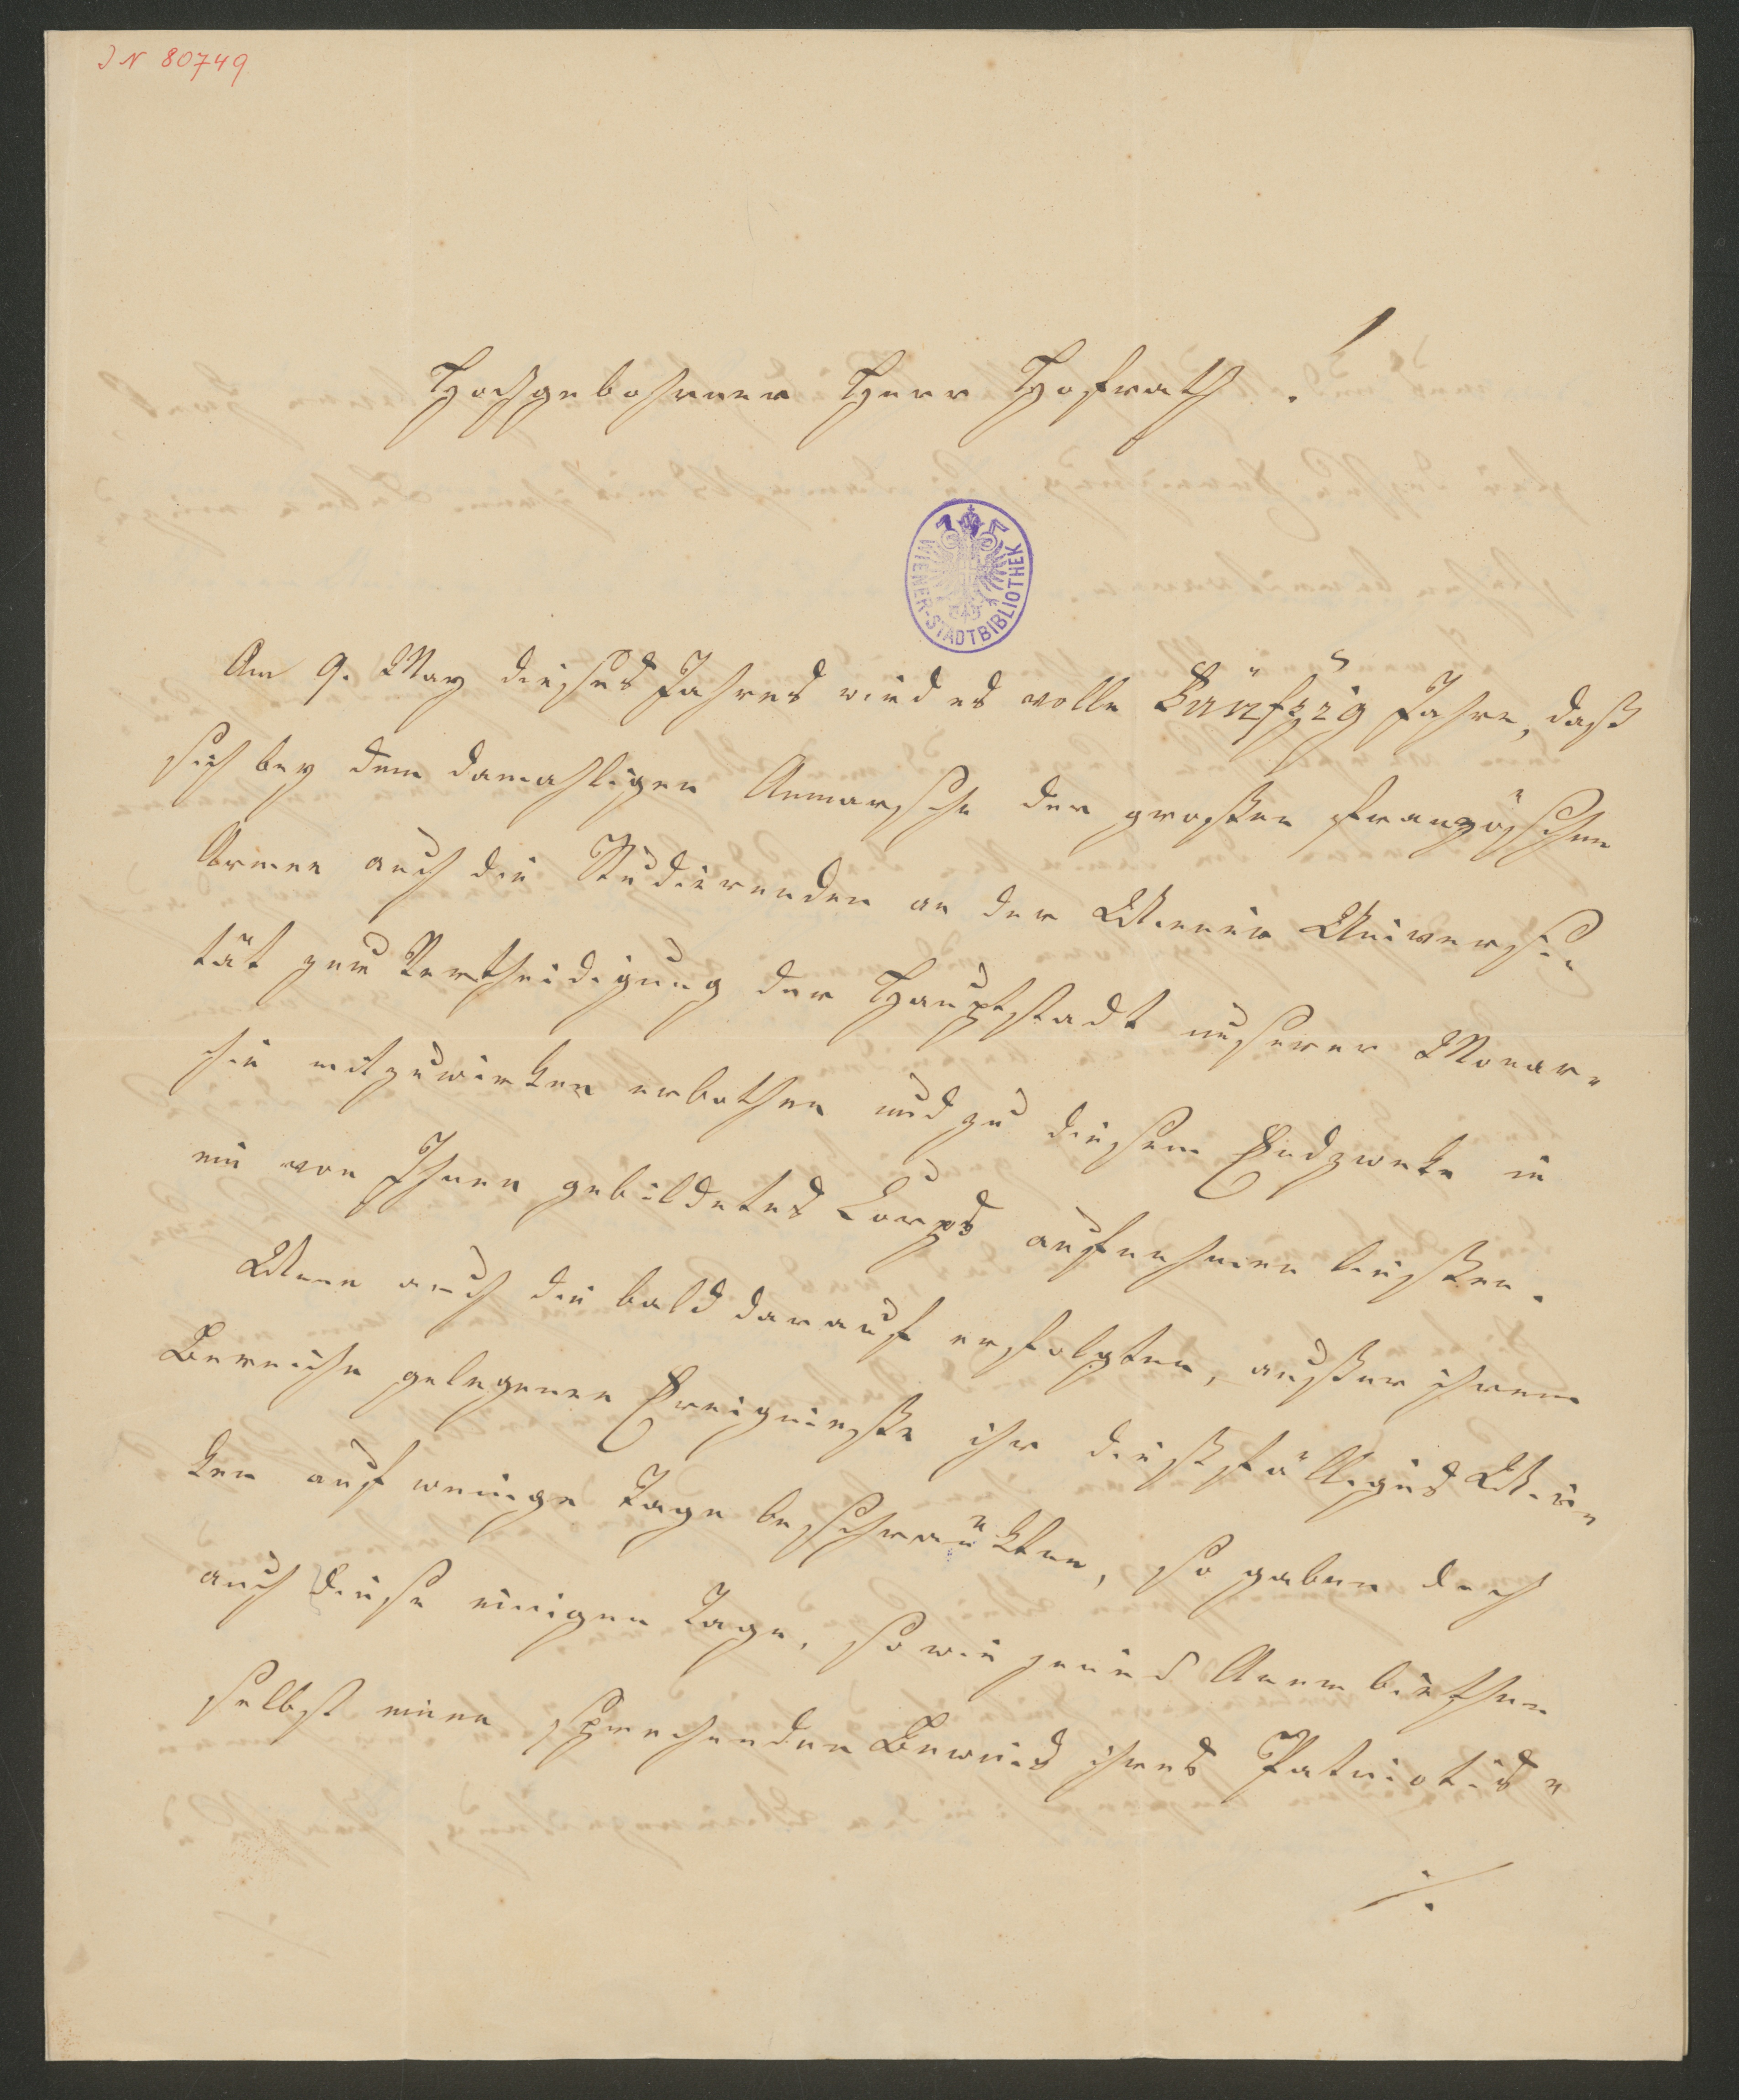 I N 80749
Hochgebohrner Herr Hofrath!
WIENER-STADTBIBLIOTHEK
Am 9. May dieses Jahres wird es volle Fünfzig Jahre, daß
sich bey dem damahligen Anmarsche der großen französchen
Armee auch die Studierenden an der Wiener Universi-
tät zur Vertheidigung der Hauptstadt unserer Monar-
chie mitzuwirken erbothen und zu diesem Endzwecke in
ein von Ihnen gebildetes Corps aufnehmen ließen.
Wenn auch die bald darauf erfolgten, außer ihrem
Bereiche gelegenen Ereigniße ihr dießfälliges Wir-
ken auf wenige Tage beschränkten, so gaben doch
auch diese einigen Tage, so wie jenes Anerbiethen
selbst einen sprechenden Beweis ihres Patriotis-
./.